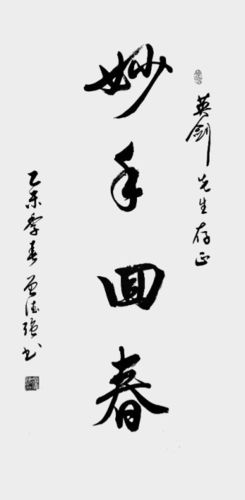 英剑先生存正
妙手回春
乙未季春曾德强书